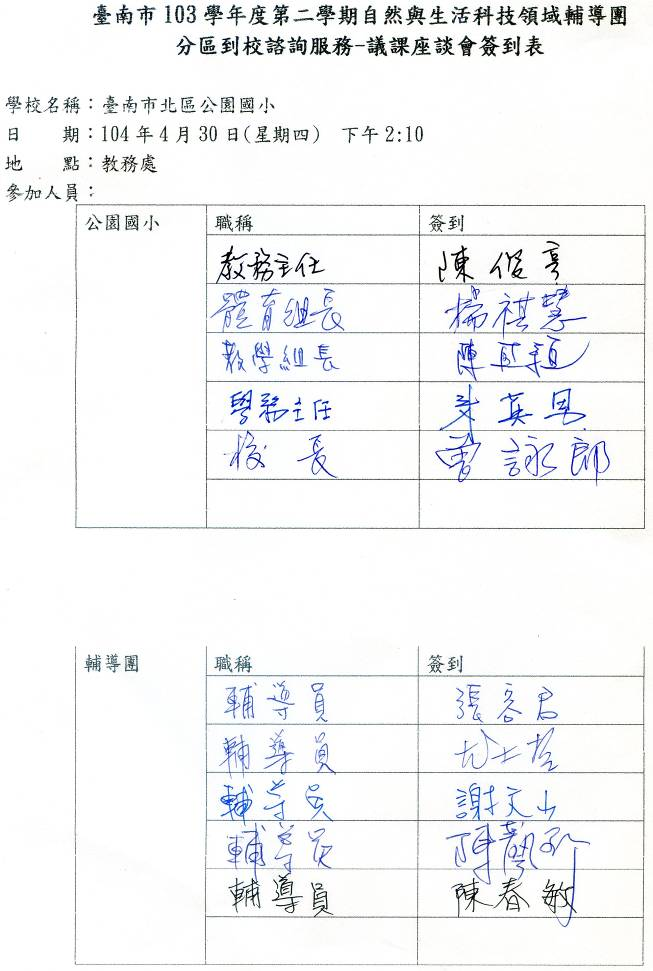 臺南市 103 學年度第二學期自然與生活科技領域輔導團
分區到校諮詢服務-議課座談會簽到表
學校名稱：臺南市北區公園國小
日　　期：104 年 4 月 30 日(星期四)　下午 2:10
地　　點：教務處
參加人員：
公園國小 職稱 簽到
教務主任 陳俊亨
體育組長 楊祺慧
教學組長 陳
學務主任 英恩
校長 曾詠郎
輔導團 職稱 簽到
輔導員 張容君
輔導員
輔導員 謝文山
輔導員 陳
輔導員 陳春敏